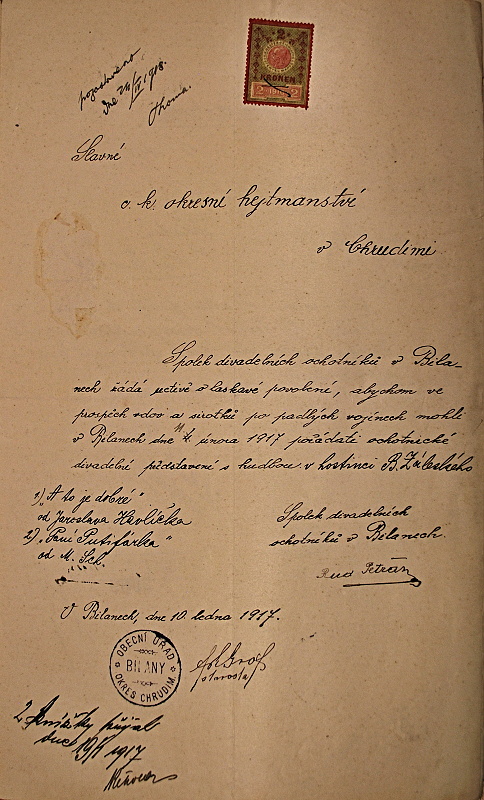 pozastaveno
dne 24/IV 1918.
2
KRONEN
2 2
Slavné
c. k. okresní hejtmanství
v Chrudimi
Spolek divadelních ochotníků v Býla-
nech žádá uctivě o laskavé povolení, abychom ve
prospěch vdov a sirotků po padlých vojínech mohli
v Bylanech dne 4. února 1917 pořádati ochotnické
divadelní představení s hudbou v hostinci B. Záleského
1) „A to je dobré"
od Jaroslava Havlíčka
2) „Paní Putifárka"
od M. Sck.
Spolek divadelních
ochotníků v Bylanech.
Rud Petráň
V Bylanech, dne 10. ledna 1917.
OBECNÍ ÚŘAD
BILANY
OKRES CHRUDIM
Graf
starosta
2 knížky přijal
dne 19/I 1917